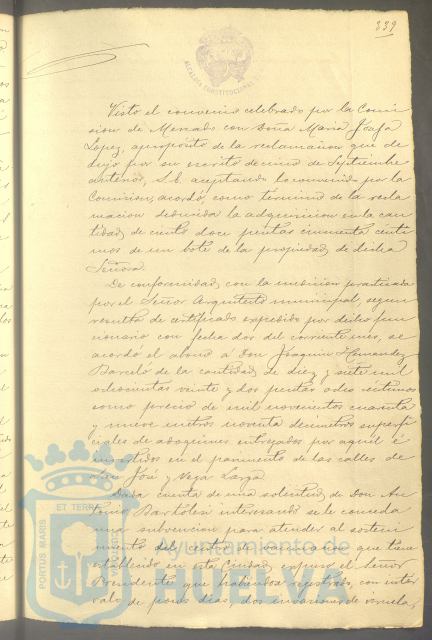 339
ALCALDIA CONSTITUCIONAL
Visto el convenio celebrado por la Comi
sion de Mercado con Doña Maria Josefa
Lopez, apropósito de la reclamacion que de
dujo por su escrito de uno de Septiembre
anterior, S.E. aceptando lo convenido por la
Comision, acordó, como termino de la recla
macion deducida la adquisicion en la can
tidad de ciento doce pesetas cincuenta centi
mos de un bote de la propiedad de dicha
Señora.
De conformidad con la medicion practicada
por el Señor Arquitecto municipal, segun
resulta de certificado expedido por dicho fun
cionario con fecha dos del corriente mes, se
acordó el abono á Don Joaquin Hernandez
Barceló de la cantidad de diez y siete mil
ochocientas veinte y dos pesetas ocho céntimos
como precio de mil novecientos cuarenta
y nueve metros noventa decimetros superfi
ciales de adoquines entregados por aquel é
invertidos en el pavimento de las calles de
San José y Vega Larga
Dada cuenta de una solicitud de Don An
tonio Bartolesi interesando se le conceda
una subvencion para atender al sosteni
miento del centro de vacunacion que tiene
establecido en esta Ciudad, expuso el Señor
Presidente que habiendose registrado, con inter
valo de pocos dias, dos invasiones de viruela,
PORTUS MARIS
ET TERRAE
Ayuntamiento de
HUELVA